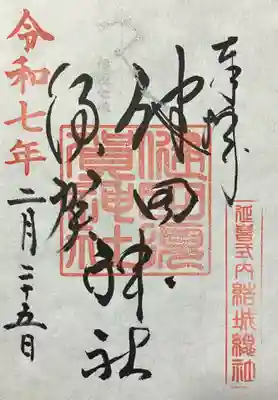 奉拝
延喜式内結城總社
健田
須賀
神社
健田須
賀神社
令和七年
二月二十五日